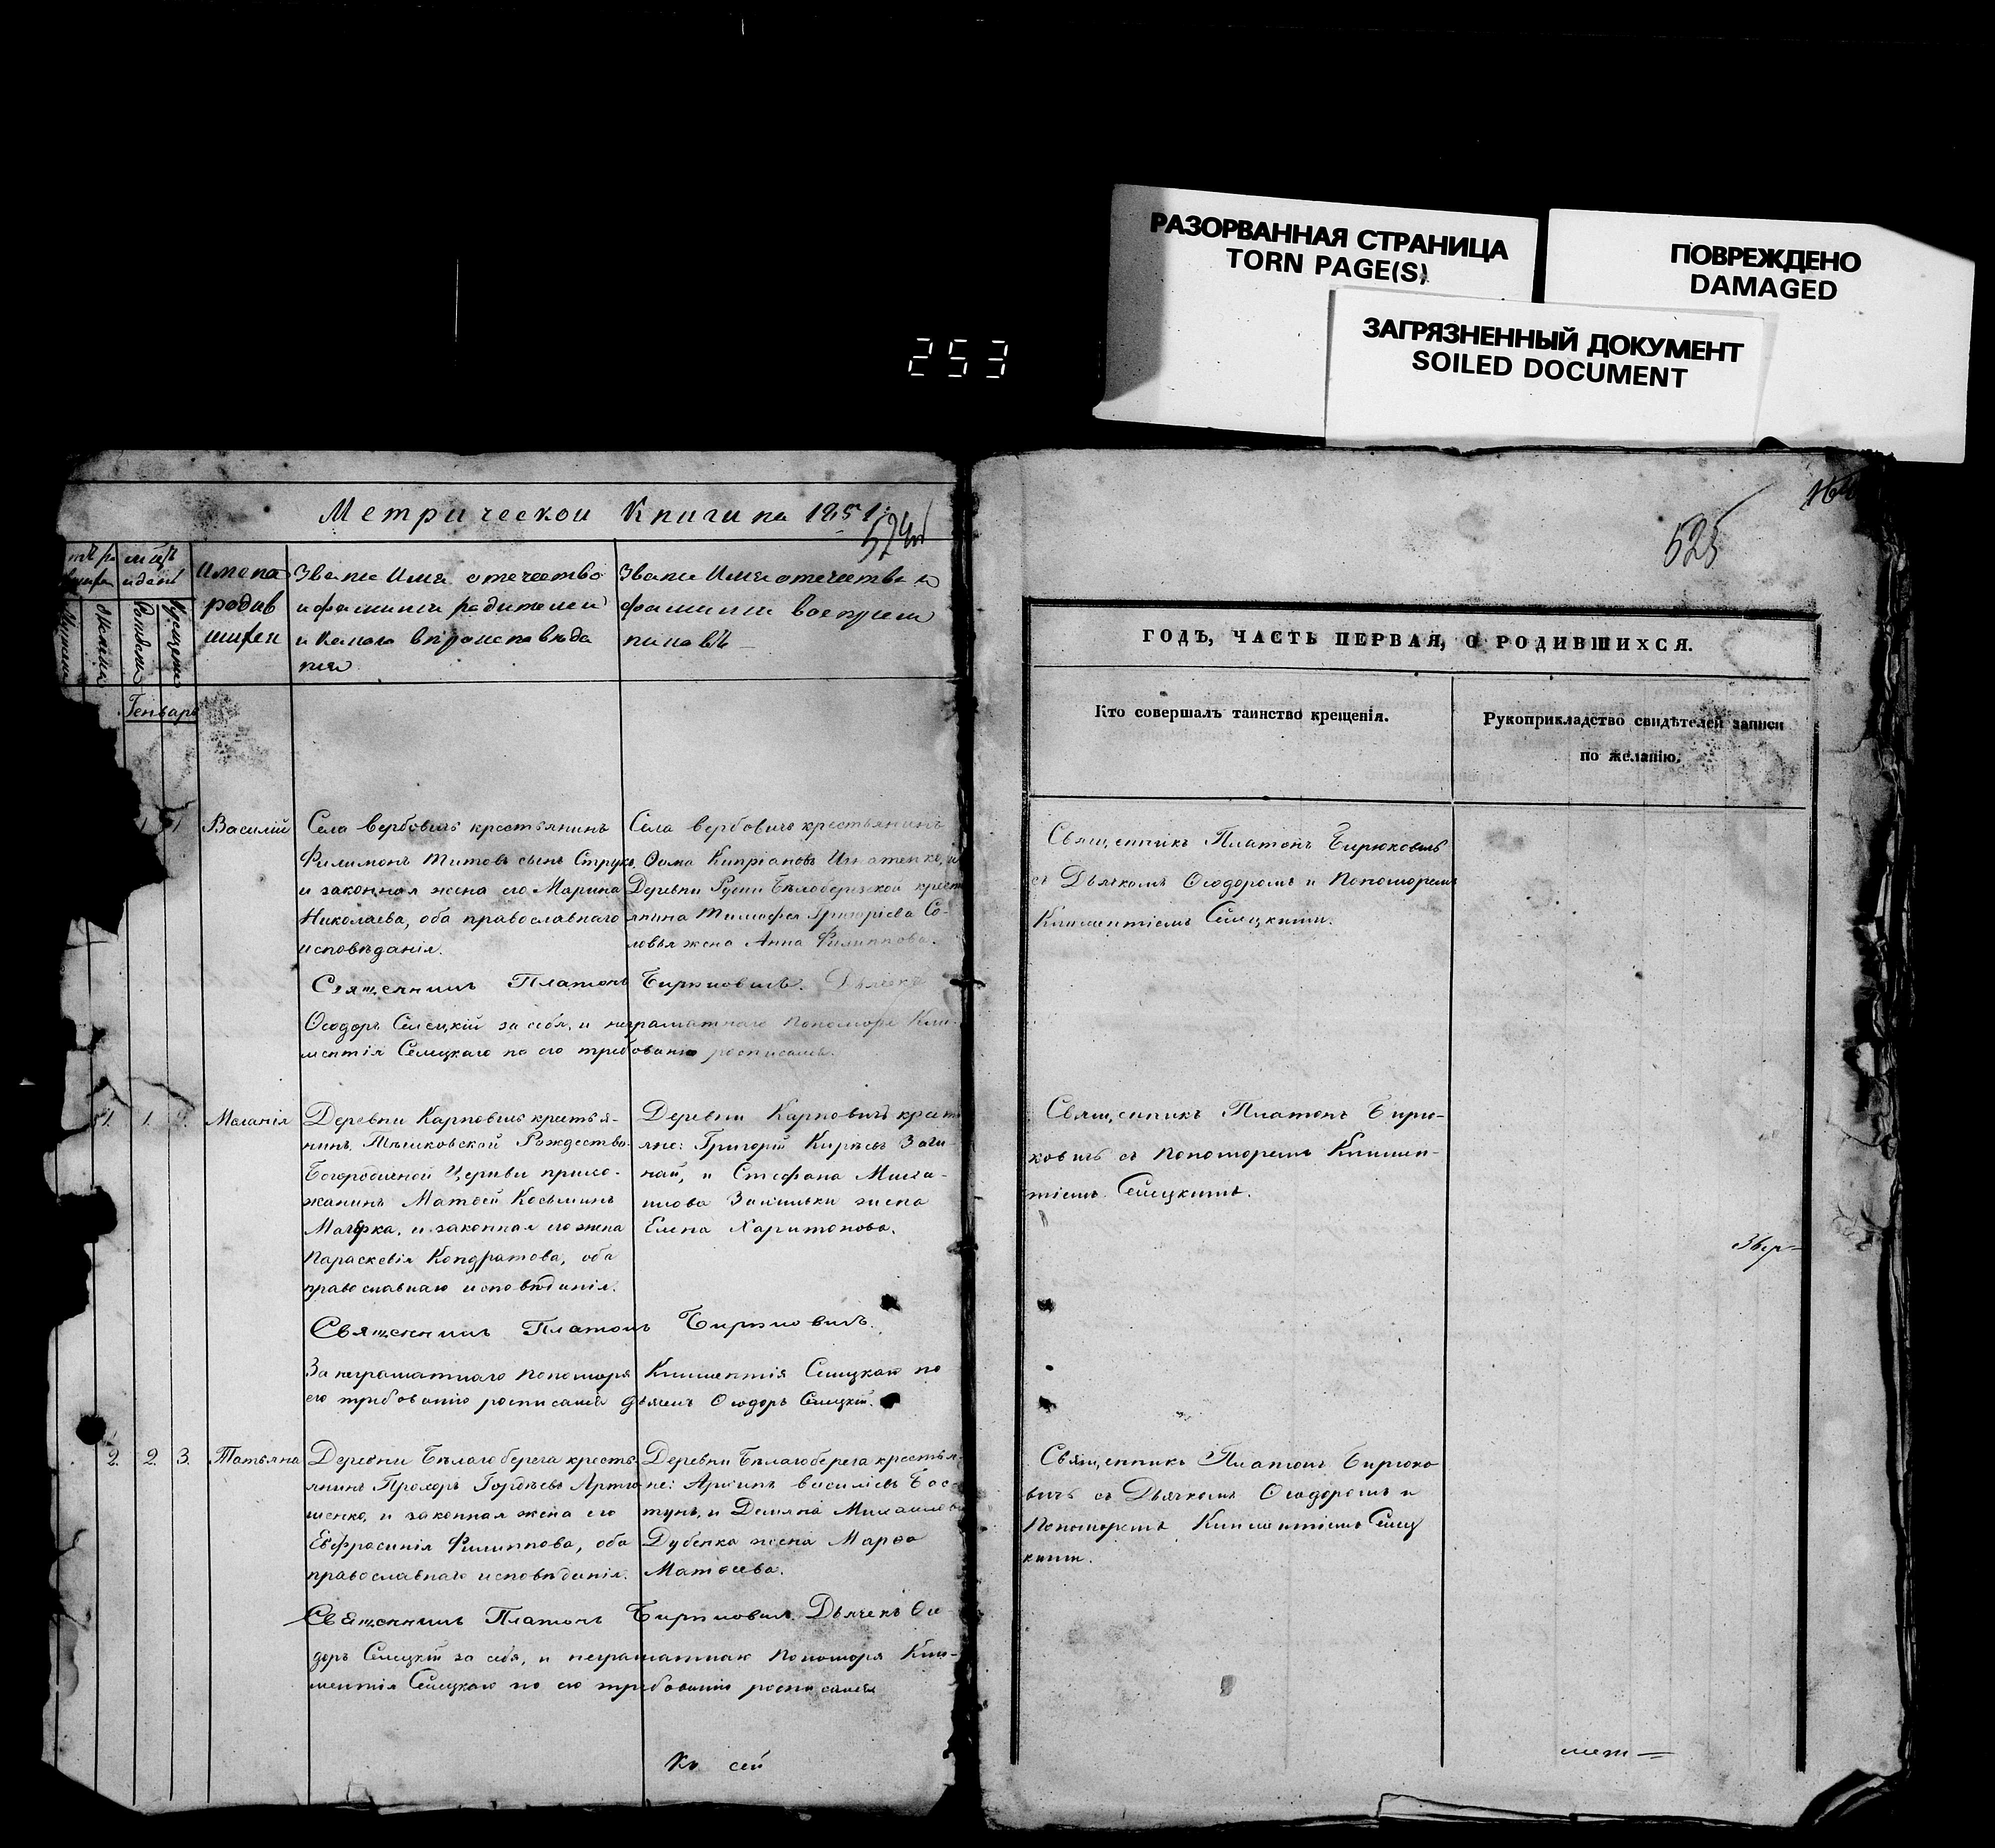 РАЗОРВАННАЯ СТРАНИЦА
TORN PAGE(S)
ПОВРЕЖДЕНО
DAMAGED
ЗАГРЯЗНЕННЫЙ ДОКУМЕНТ
SOILED DOCUMENT
253
Метрической Книги на 1851:
Имена
родив
шихся
Званіе Имя отечество
и фамилія родителей
и какого вѣроисповѣда
нія
Званіе Имя отечество и
фамилія воспріем
никовъ
Генварь
1 Василій
Села Вербовичь крестьянинъ
Филимонъ Титовъ сынъ Струкъ,
и законная жена его Марина
Николаева, оба православнаго
исповѣданія.
Села Вербовичь крестьянинъ
Ѳома Кипріановъ Игнатенко, и
Деревни Рудни Бѣлоберезской крест
янина Тимофея Григоріева Со-
ловья жена Анна Филиппова.
Священникъ Платонъ Бирюковичь. Дьячекъ
Ѳеодоръ Селецкій за себя, и неграматнаго пономоря Кли-
ментія Селецкаго по его требованію росписался.
1. 1. Меланія
Деревни Карповичь крестья-
нинъ, Мѣшковской Рождество
Богородичной Церкви прихо-
жанинъ Матѳей Косьминъ
и законная его жена
Параскевія Кондратова, оба
православнаго исповѣданія.
Деревни Карповичь крестья
яне: Григорій Кирѣевъ
и Стефана Миха-
илова жена
Елена Харитонова.
Священникъ Платонъ Бирюковичь.
За неграматнаго пономоря Климентія Селецкаго по
его требованію росписался дьячекъ Ѳеодоръ Селецкій.
2. 2. 3. Татьяна
Деревни Бѣлагоберега кресть
янинъ Прохоръ Гордѣевъ Артю
шенко, и законная жена его
Евфросинія Филиппова, оба
православнаго исповѣданія.
Деревни Бѣлагоберега крестья
не: Архипъ Василіевъ
и Деміяна Михайлова
Дубенка жена Марѳа
Матѳеева.
Священникъ Платонъ Бирюковичь. Дьячекъ Ѳео
доръ Селецкій за себя, и неграматнаго пономоря Кли-
ментія Селецкаго по его требованію росписался
Къ сей
525
ГОДЪ, ЧАСТЬ ПЕРВАЯ, О РОДИВШИХСЯ.
Кто совершалъ таинство крещенія.
Рукоприкладство свидѣтелей записи
по желанію.
Священникъ Платонъ Бирюковичь
съ Дьячкомъ Ѳеодоромъ и пономоремъ
Климентіемъ Селецкими.
Священникъ Платонъ Бирю-
ковичь съ пономоремъ Климен-
тіемъ Селецкимъ.
Священникъ Платонъ Бирюко
вичь съ Дьячкомъ Ѳеодоромъ и
пономоремъ Климентіемъ Селец
кими.
мет=